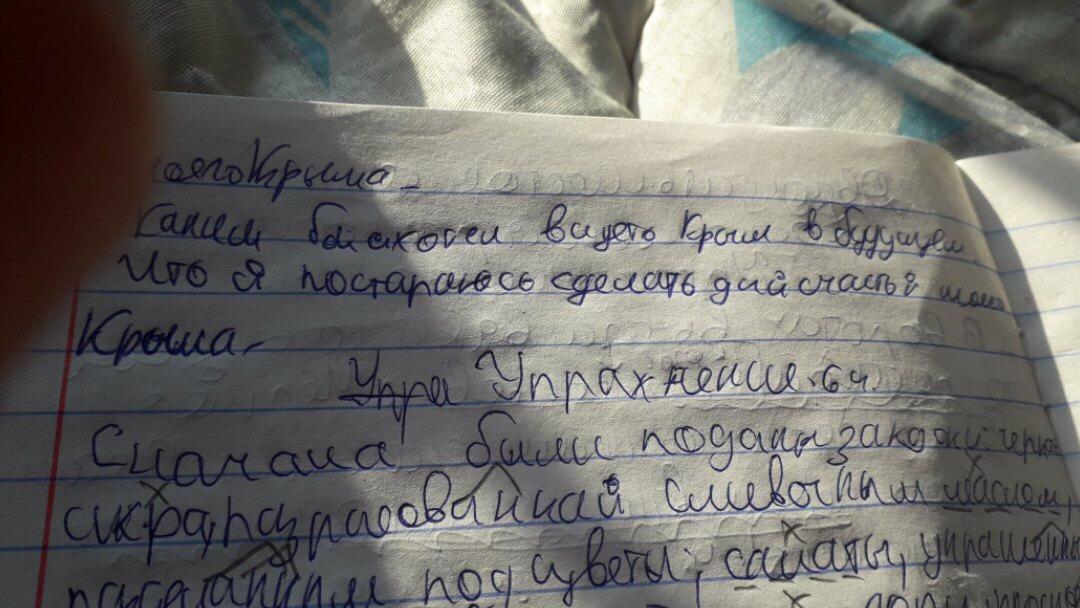 Крыма.
бы я хотел видеть Крым в будущем.
Что я постараюсь сделать для счастья моего
Крыма.
Упра Упражнение. 64.
Сначала были поданы закуски: черная
икра, разрисованной сливочным маслом,
под цветы; салаты, украшенные